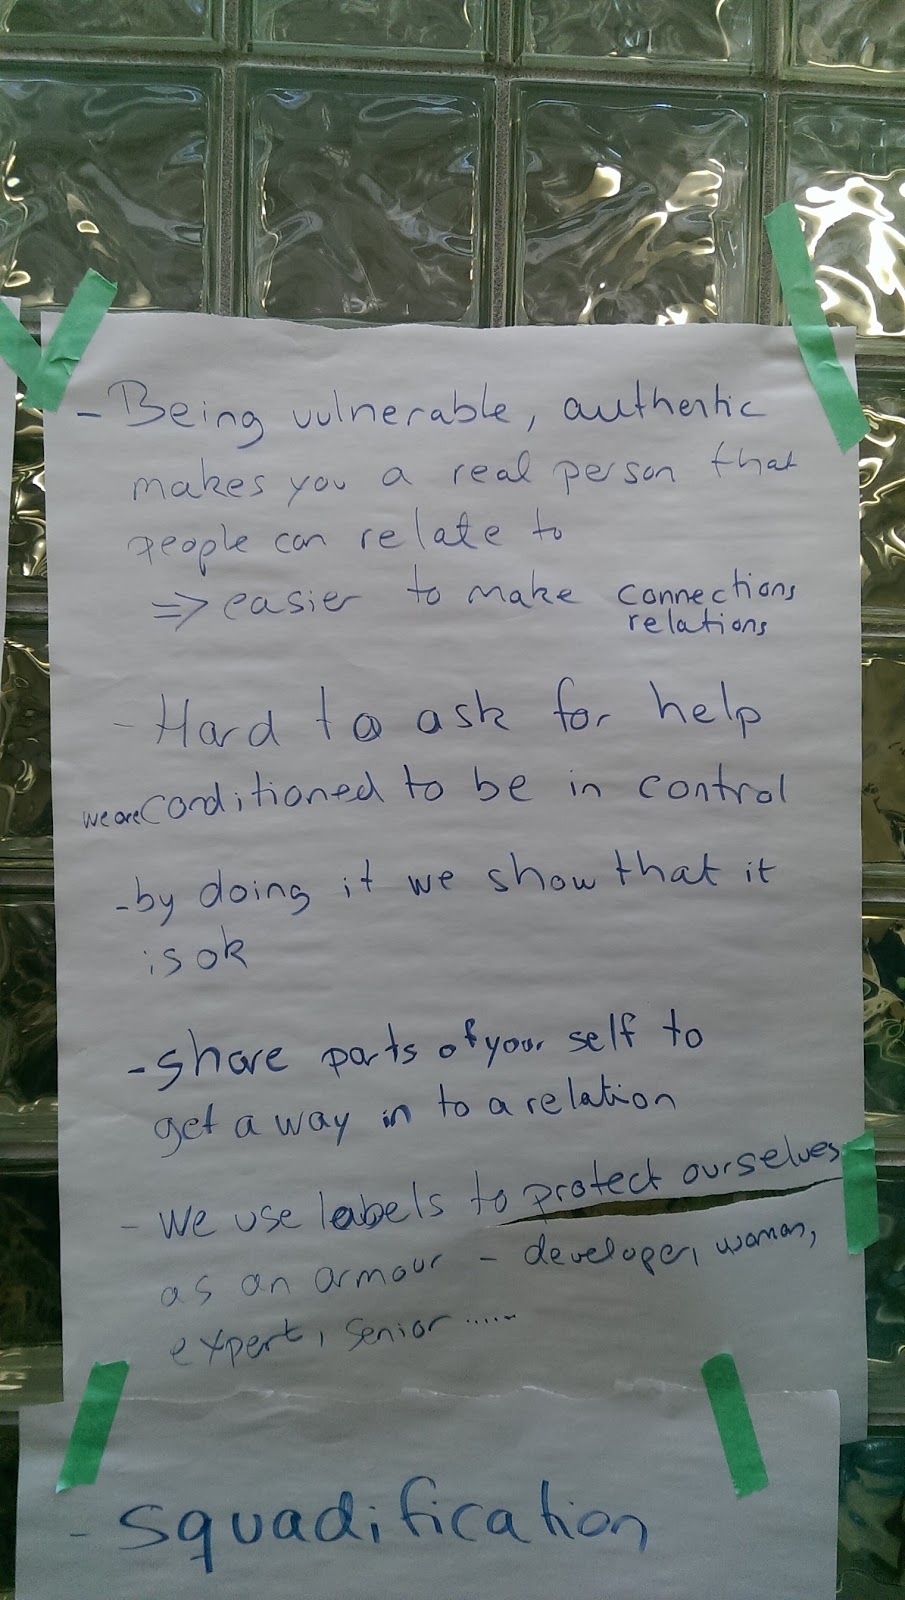 - Being vulnerable, authentic
makes you a real person that
people can relate to
=> easier to make connections
relations
- Hard to ask for help
we are conditioned to be in control
- by doing it we show that it
is ok
- share parts of your self to
get a way in to a relation
- we use labels to protect ourselves
as an armour - developer, woman,
expert, senior .....
- Squadification